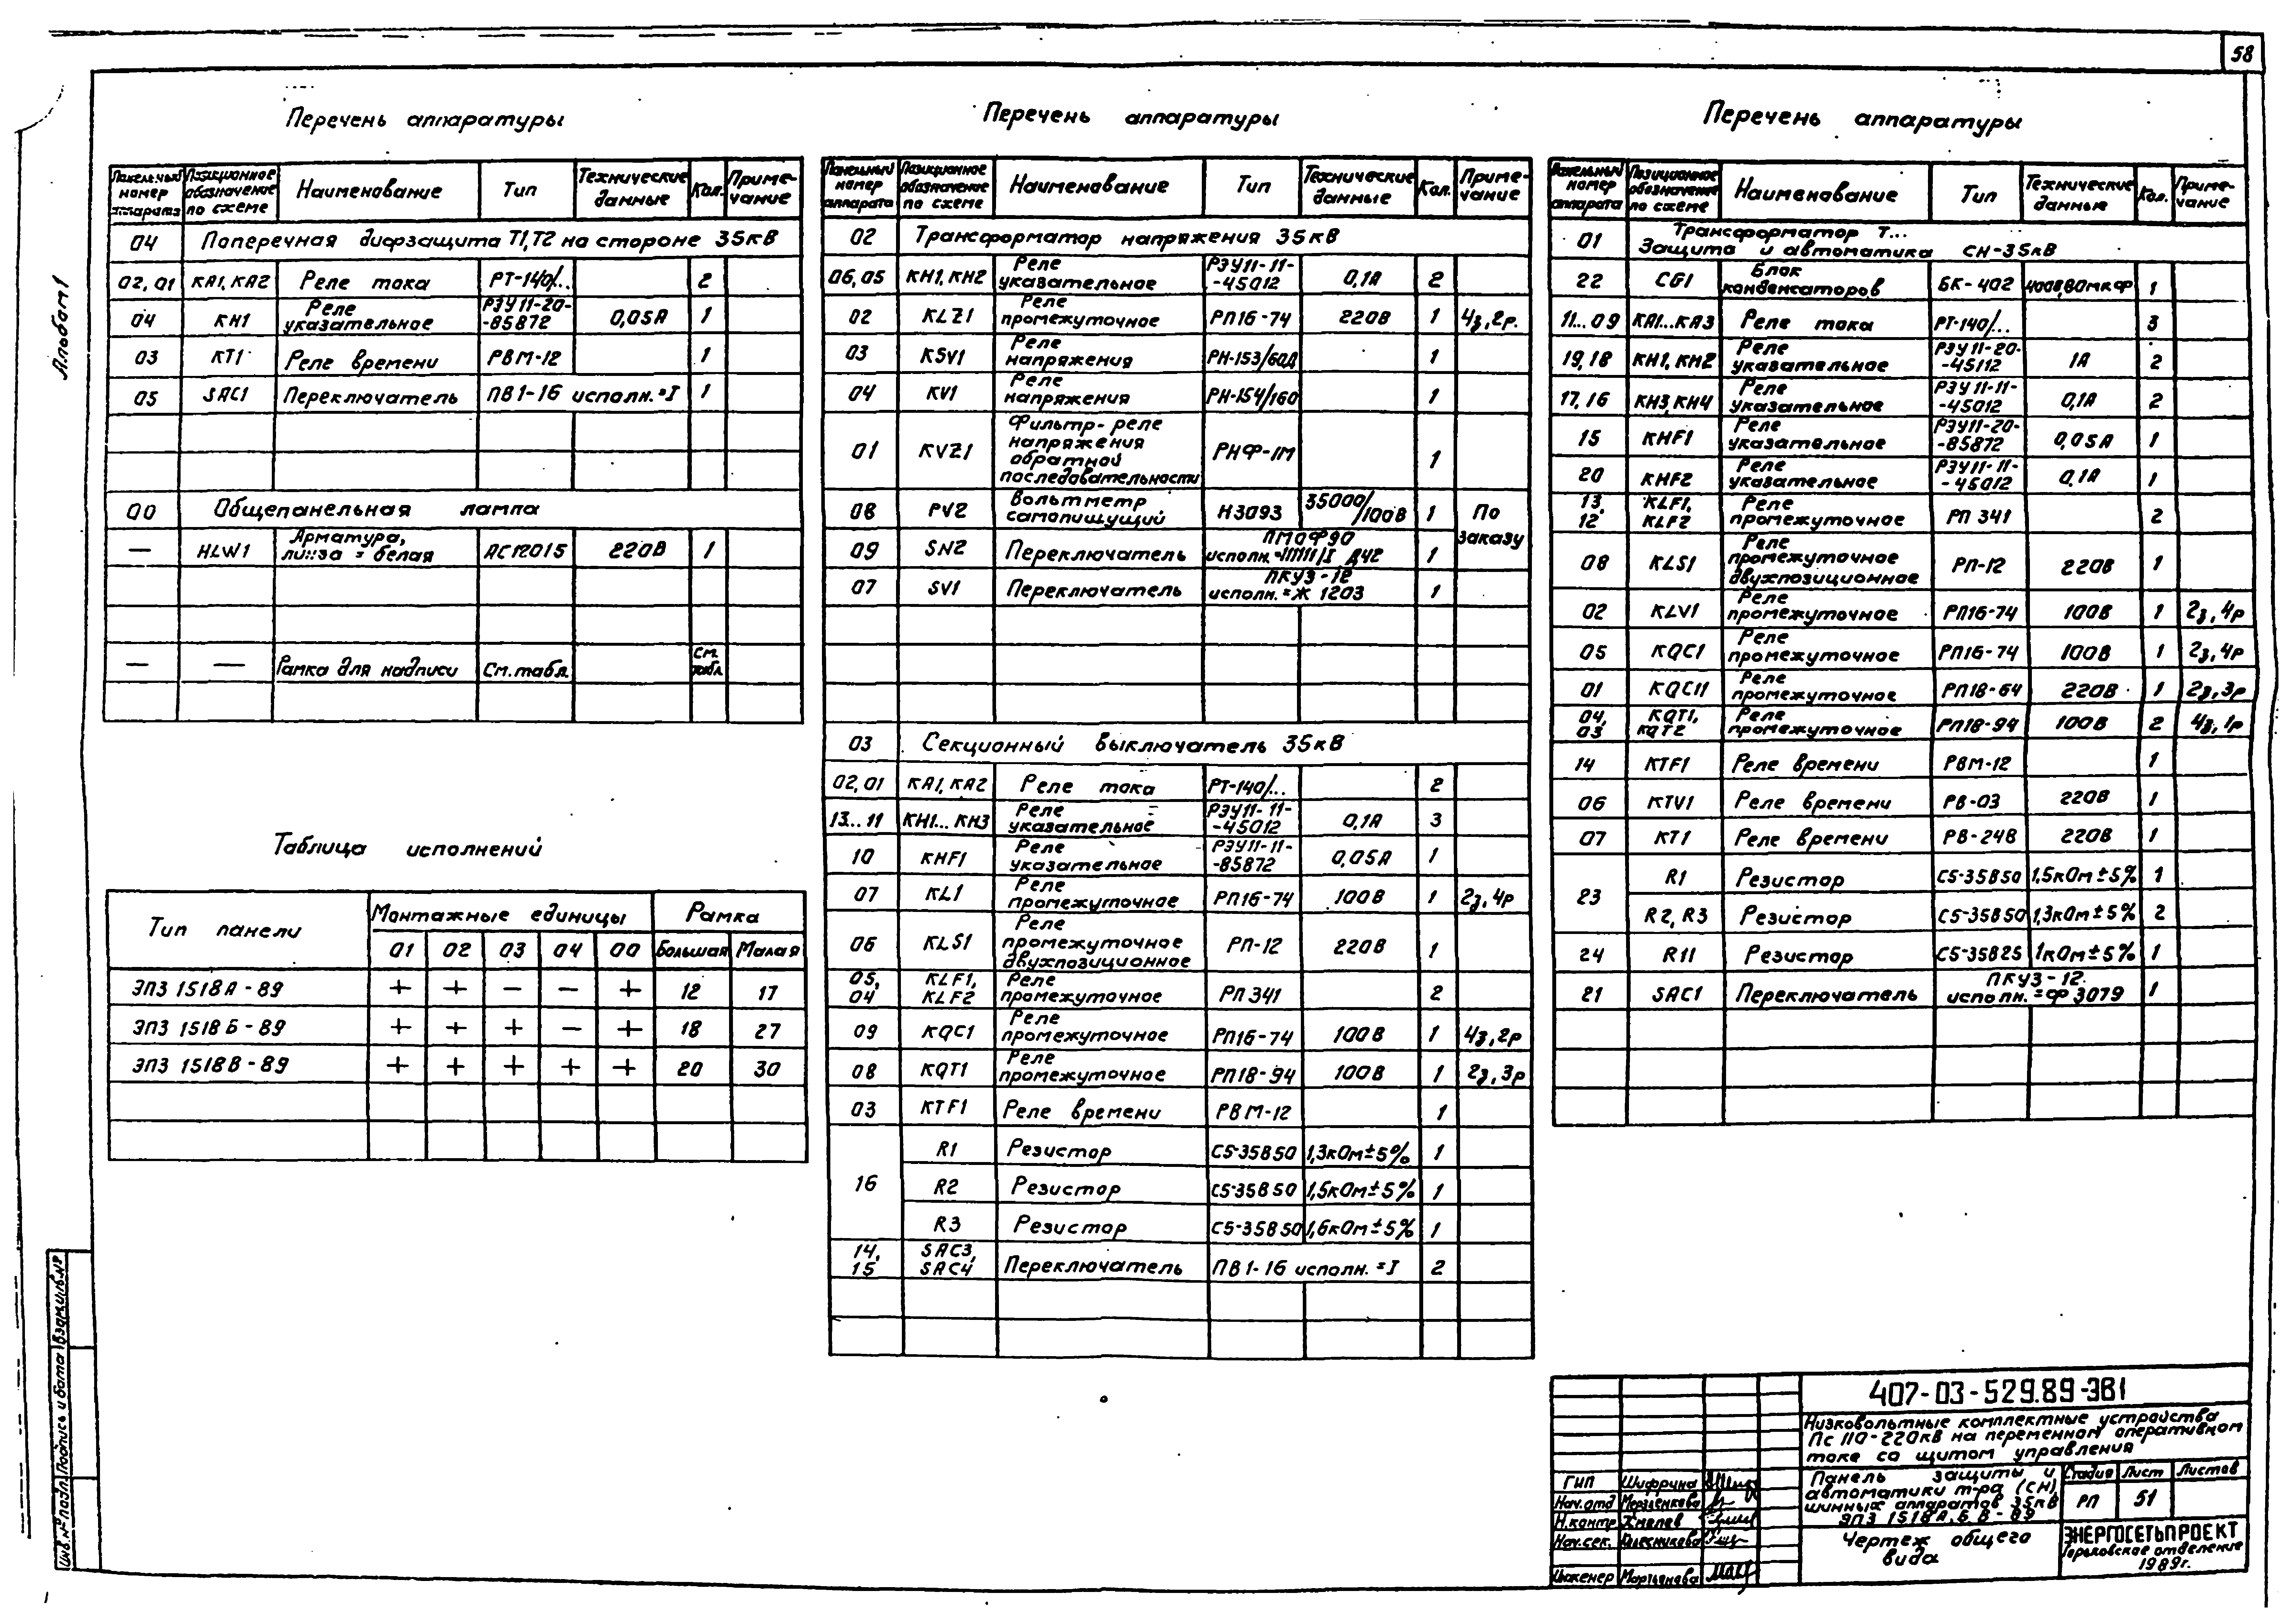 58
Альбом 1
Перечень аппаратуры
Панельный номер аппарата | Позиционное обозначение по схеме | Наименование | Тип | Технические данные | Кол. | Примечание
04 Поперечная дифзащита Т1,Т2 на стороне 35кВ
02, 01 КА1, КА2 Реле тока РТ-140/... 2
04 КН1 Реле указательное РЭУ11-20-85872 0,05А 1
03 КТ1 Реле времени РВМ-12 1
05 SAC1 Переключатель ПВ1-16 исполн.=I 1
00 Общепанельная лампа
— HLW1 Арматура, линза = белая АС12015 220В 1
— — Рамка для надписи См.табл. См. табл.
Таблица исполнений
Тип панели | Монтажные единицы | Рамка
01 02 03 04 00 Большая Малая
ЭПЗ 1518А-89 + + – – + 12 17
ЭПЗ 1518Б-89 + + + – + 18 27
ЭПЗ 1518В-89 + + + + + 20 30
Перечень аппаратуры
Панельный номер аппарата | Позиционное обозначение по схеме | Наименование | Тип | Технические данные | Кол. | Примечание
02 Трансформатор напряжения 35кВ
06,05 КН1, КН2 Реле указательное РЭУ11-11-45012 0,1А 2
02 KLZ1 Реле промежуточное РП16-74 220В 1 4з,2р.
03 KSV1 Реле напряжения РН-153/60Д 1
04 KV1 Реле напряжения РН-154/160 1
01 KVZ1 Фильтр-реле напряжения обратной последовательности РНФ-1М 1
08 PV2 Вольтметр самопишущий Н3093 35000/100В 1 По заказу
09 SN2 Переключатель ПМОФ90 исполн.=111111/I Д42 1
07 SV1 Переключатель ПКУ3-12 исполн.=Ж 1203 1
03 Секционный выключатель 35кВ
02,01 КА1, КА2 Реле тока РТ-140/... 2
13...11 КН1...КН3 Реле указательное РЭУ11-11-45012 0,1А 3
10 KHF1 Реле указательное РЭУ11-11-85872 0,05А 1
07 KL1 Реле промежуточное РП16-74 100В 1 2з,4р
06 KLS1 Реле промежуточное двухпозиционное РП-12 220В 1
05, 04 KLF1, KLF2 Реле промежуточное РП341 2
09 KQC1 Реле промежуточное РП16-74 100В 1 4з,2р
08 KQT1 Реле промежуточное РП18-94 100В 1 2з,3р
03 KTF1 Реле времени РВМ-12 1
16 R1 Резистор С5-35В50 1,3кОм±5% 1
R2 Резистор С5-35В50 1,5кОм±5% 1
R3 Резистор С5-35В50 1,6кОм±5% 1
14, 15 SAC3, SAC4 Переключатель ПВ1-16 исполн.=I 2
Перечень аппаратуры
Панельный номер аппарата | Позиционное обозначение по схеме | Наименование | Тип | Технические данные | Кол. | Примечание
01 Трансформатор Т...
Защита и автоматика СН-35кВ
22 CG1 Блок конденсаторов БК-402 400В,80мкФ 1
11...09 КА1...КА3 Реле тока РТ-140/... 3
19,18 КН1, КН2 Реле указательное РЭУ11-20-45112 1А 2
17,16 КН3,КН4 Реле указательное РЭУ11-11-45012 0,1А 2
15 KHF1 Реле указательное РЭУ11-20-85872 0,05А 1
20 KHF2 Реле указательное РЭУ11-11-45012 0,1А 1
13, 12 KLF1, KLF2 Реле промежуточное РП 341 2
08 KLS1 Реле промежуточное двухпозиционное РП-12 220В 1
02 KLV1 Реле промежуточное РП16-74 100В 1 2з,4р
05 KQC1 Реле промежуточное РП16-74 100В 1 2з,4р
01 KQC11 Реле промежуточное РП18-64 220В 1 2з,3р
04, 03 KQT1, KQT2 Реле промежуточное РП18-94 100В 2 4з,1р
14 KTF1 Реле времени РВМ-12 1
06 KTV1 Реле времени РВ-03 220В 1
07 КТ1 Реле времени РВ-248 220В 1
23 R1 Резистор С5-35В50 1,5кОм±5% 1
R2, R3 Резистор С5-35В50 1,3кОм±5% 2
24 R11 Резистор С5-35В25 1кОм±5% 1
21 SAC1 Переключатель ПКУ3-12. исполн.=Ф 3079 1
407-03-529.89-ЭВ1
Низковольтные комплектные устройства
Пс 110-220кВ на переменном оперативном
токе со щитом управления
ГИП Шифрина
Нач.отд
Н.контр Хмелев
Нач.сек. Колесникова
Инженер Мартьянова
Панель защиты и
автоматики т-ра (СН),
шинных аппаратов 35кВ
ЭПЗ 1518А,Б,В-89
Стадия Лист Листов
РП 51
Чертеж общего
вида
ЭНЕРГОСЕТЬПРОЕКТ
Горьковское отделение
1989г.
Инв.№подл. Подпись и дата Взам.инв.№